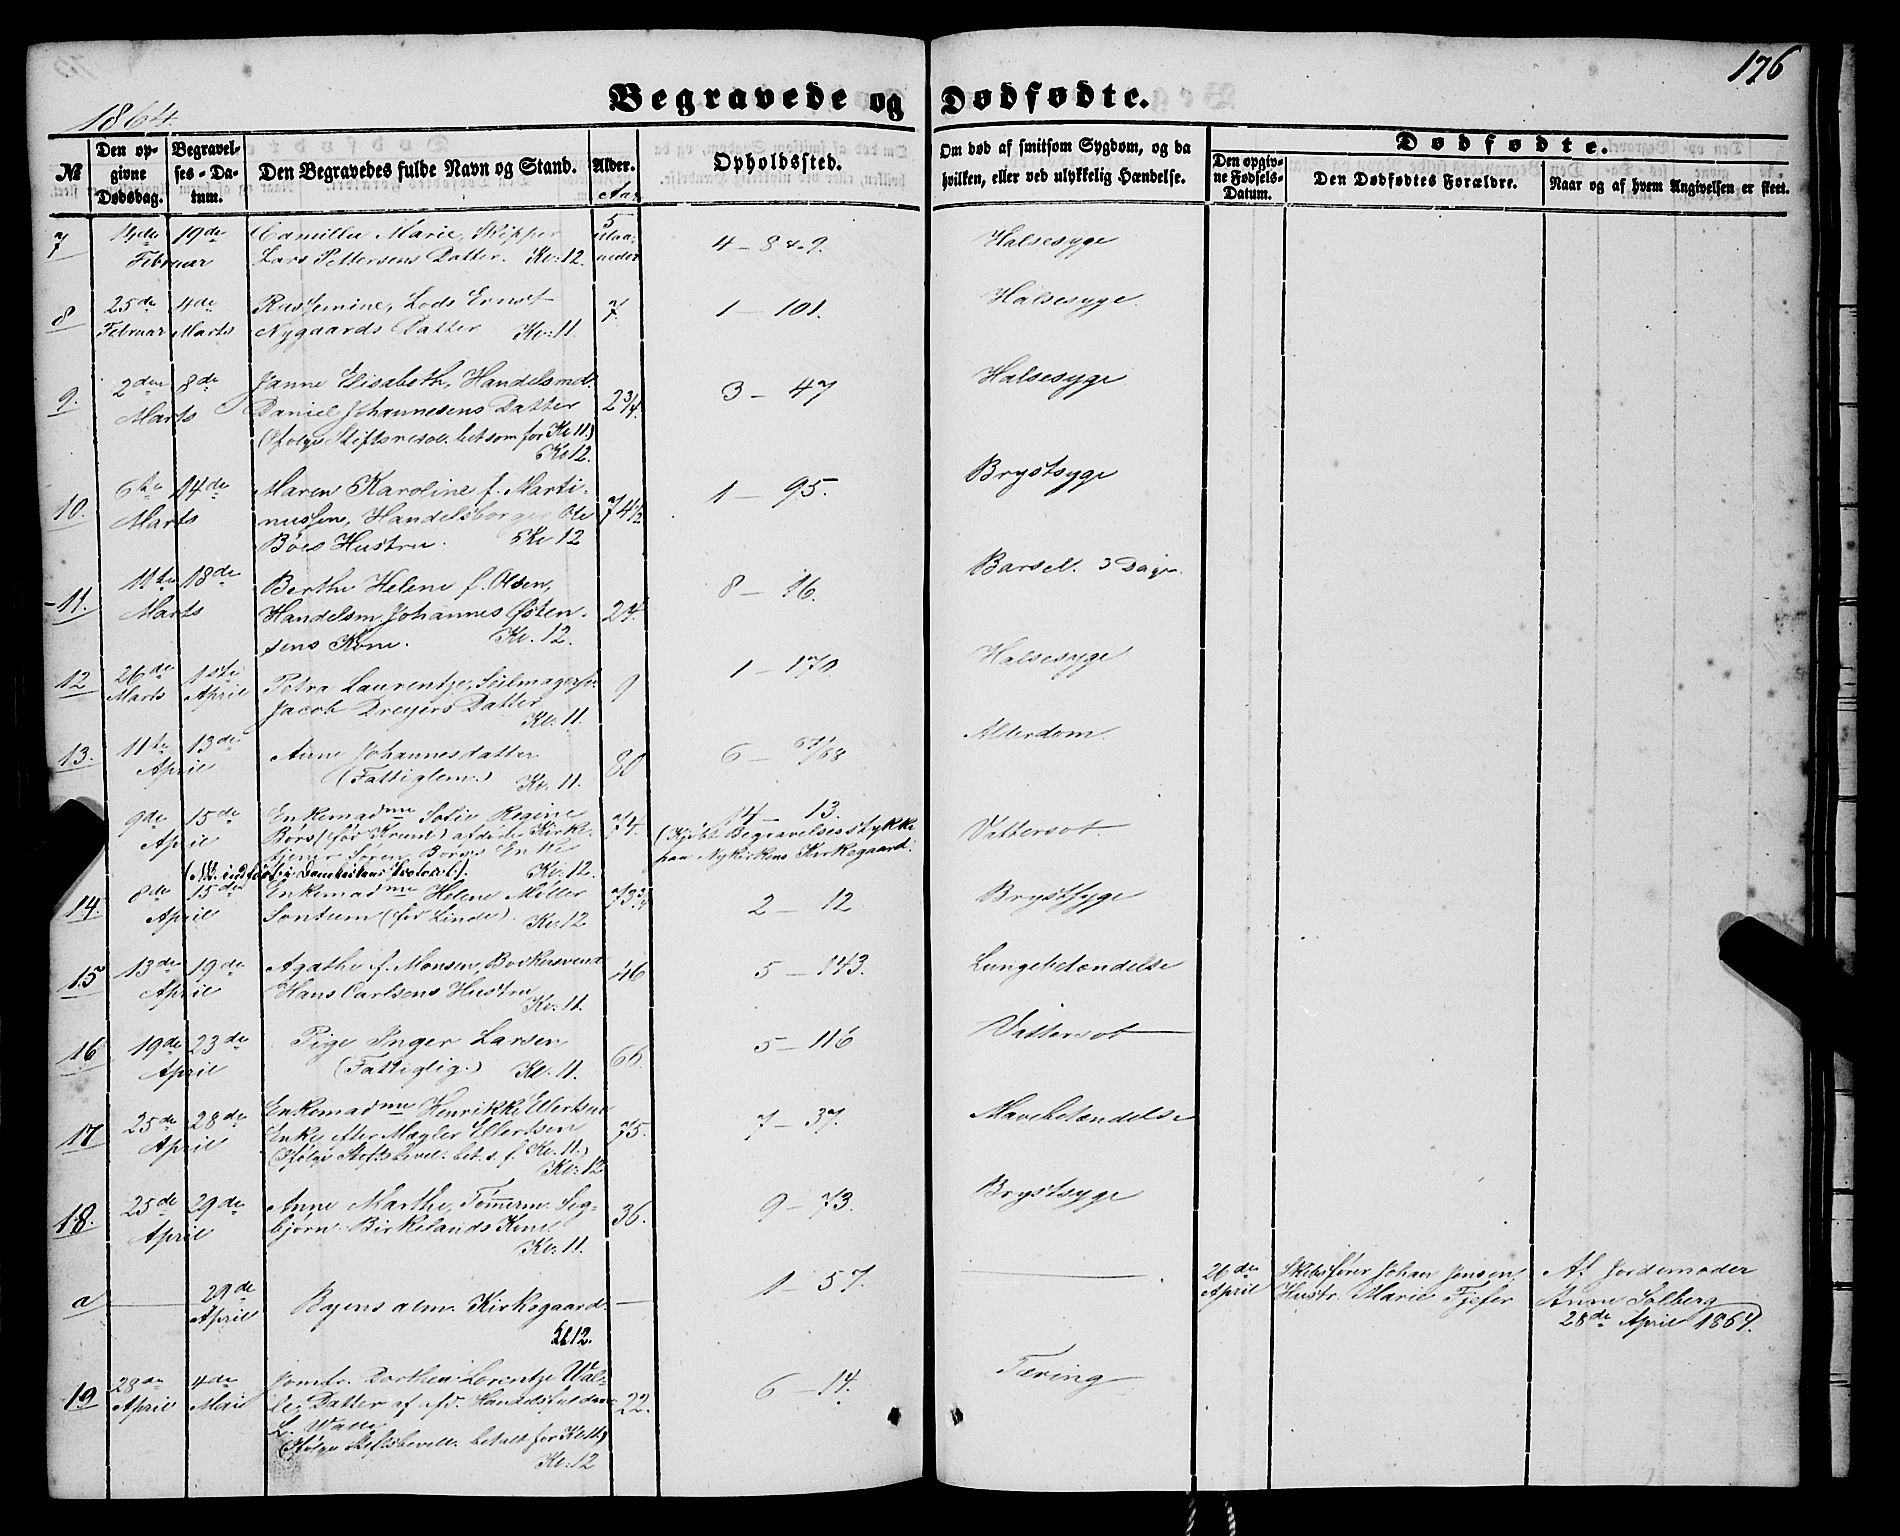 176
1864.
Begravede og Dødfødte.
№
Den opgivne Dødsdag.
Begravelses-Datum.
Den Begravedes fulde Navn og Stand.
Alder. Aar
Opholdssted.
Om død af smitsom Sygdom, og da hvilken, eller ved ulykkelig Hændelse.
Dødfødte.
Den opgivne Fødsels-Datum.
Den Dødfødtes Forældre.
Naar og af hvem Angivelsen er skeet.
7 14de 19de Camilla Marie, Skipper 5 4 – 8 & 9. Halsesyge
Februar Lars Pettersens Datter. Kl: 12. Maaneder
8 25de 4de Lods Ernst 7 1 – 101. Halsesyge
Februar Marts Nygaards Datter Kl: 11.
9. 2den 8de Janne Elisabeth, Handelsmd. 2 3/4 3 – 47 Halsesyge
Marts Daniel Johannesens Datter
(ifølge Stiftsresol. bet som for Kl 11)
Kl 12.
10. 6te 14de Maren Karoline f. Marti- 74 1/2 1 – 95. Brystsyge
Marts nussen, Handelsborger Ole
Böes Hustru. Kl 12
11. 11te 18de Berthe Helene f. Olsen, 24. 8 – 16. Barsel. 3 Dage
Marts Handelsm. Johannes Østen-
sens Kone. Kl. 12.
12 26de 1ste Petra Laurentze, Seilmager 9 1 – 170 Halsesyge
Marts April Jacob Dreyers Datter
Kl: 11.
13. 11te 13de Anne Johannesdatter 80 6 – 67/68 Alderdom
April (Fattiglem.) Kl: 11.
9de 15de Enkemadme Sofie Regine 74. 14 – 13. Vattersot
April Børs (før Krum) afdøde Kirke- (Kjöbt Begravelsesstykke
tjener Søren Börses Enke paa Nykirkens Kirkegaard.
Kl: 12.
14. 8de 15de Enkemadme Helene Möller 73 2 – 12 Brystsyge
April Sontum (før Linde). Kl: 12
15 13de 19de Agathe f. Monsen, Bødkersvend 46 5 – 143. Lungebetændelse
April Hans Carlsens Hustru
Kl: 11.
16 19de 23de Pige Inger Larsen 66. 5 – 116 Vattersot
April (Fattiglig.) Kl. 11.
17 25de 28de Enkemadme Henrikke Ellertsen 75. 7 – 37. Mavebetændelse
April Enke efter Mægler Ellertsen
(Ifølge Stiftsbevil. bet. s. f. Kl. 11.)
Kl: 12
18. 25de 29de Anne Marthe, Tömmerm. Seg- 36. 9 – 73. Brystsyge
April bjørn Birkelands Kone
Kl: 11.
a 29de Byens alm. Kirkegaard. 1 – 57. 26de Skibsfører Johan Jensen Af Jordemoder
April Kl 12. April Hustr. Marie Fjeser Anne Solberg
28de April 1864.
19 28de 4de Jomfr. Dorthea Lorentze Wal- 22. 6 – 14. Tæring
April Mai le, Datter af afd. Handelsfuldm.
L. Walle
(Ifølge Stiftsbevill. betalt for Kl 11)
Kl: 12